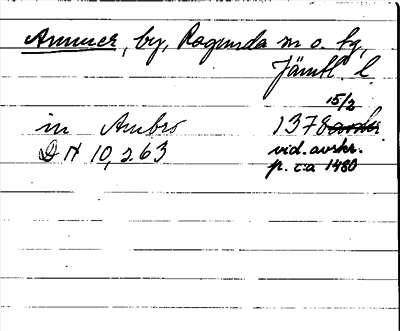 Ammer, by, Ragunda sn o. tg,
Jämtl. l.
15/2
in Ambro 1378 avskr.
DN 10, s. 63 vid. avskr.
p. ca 1480